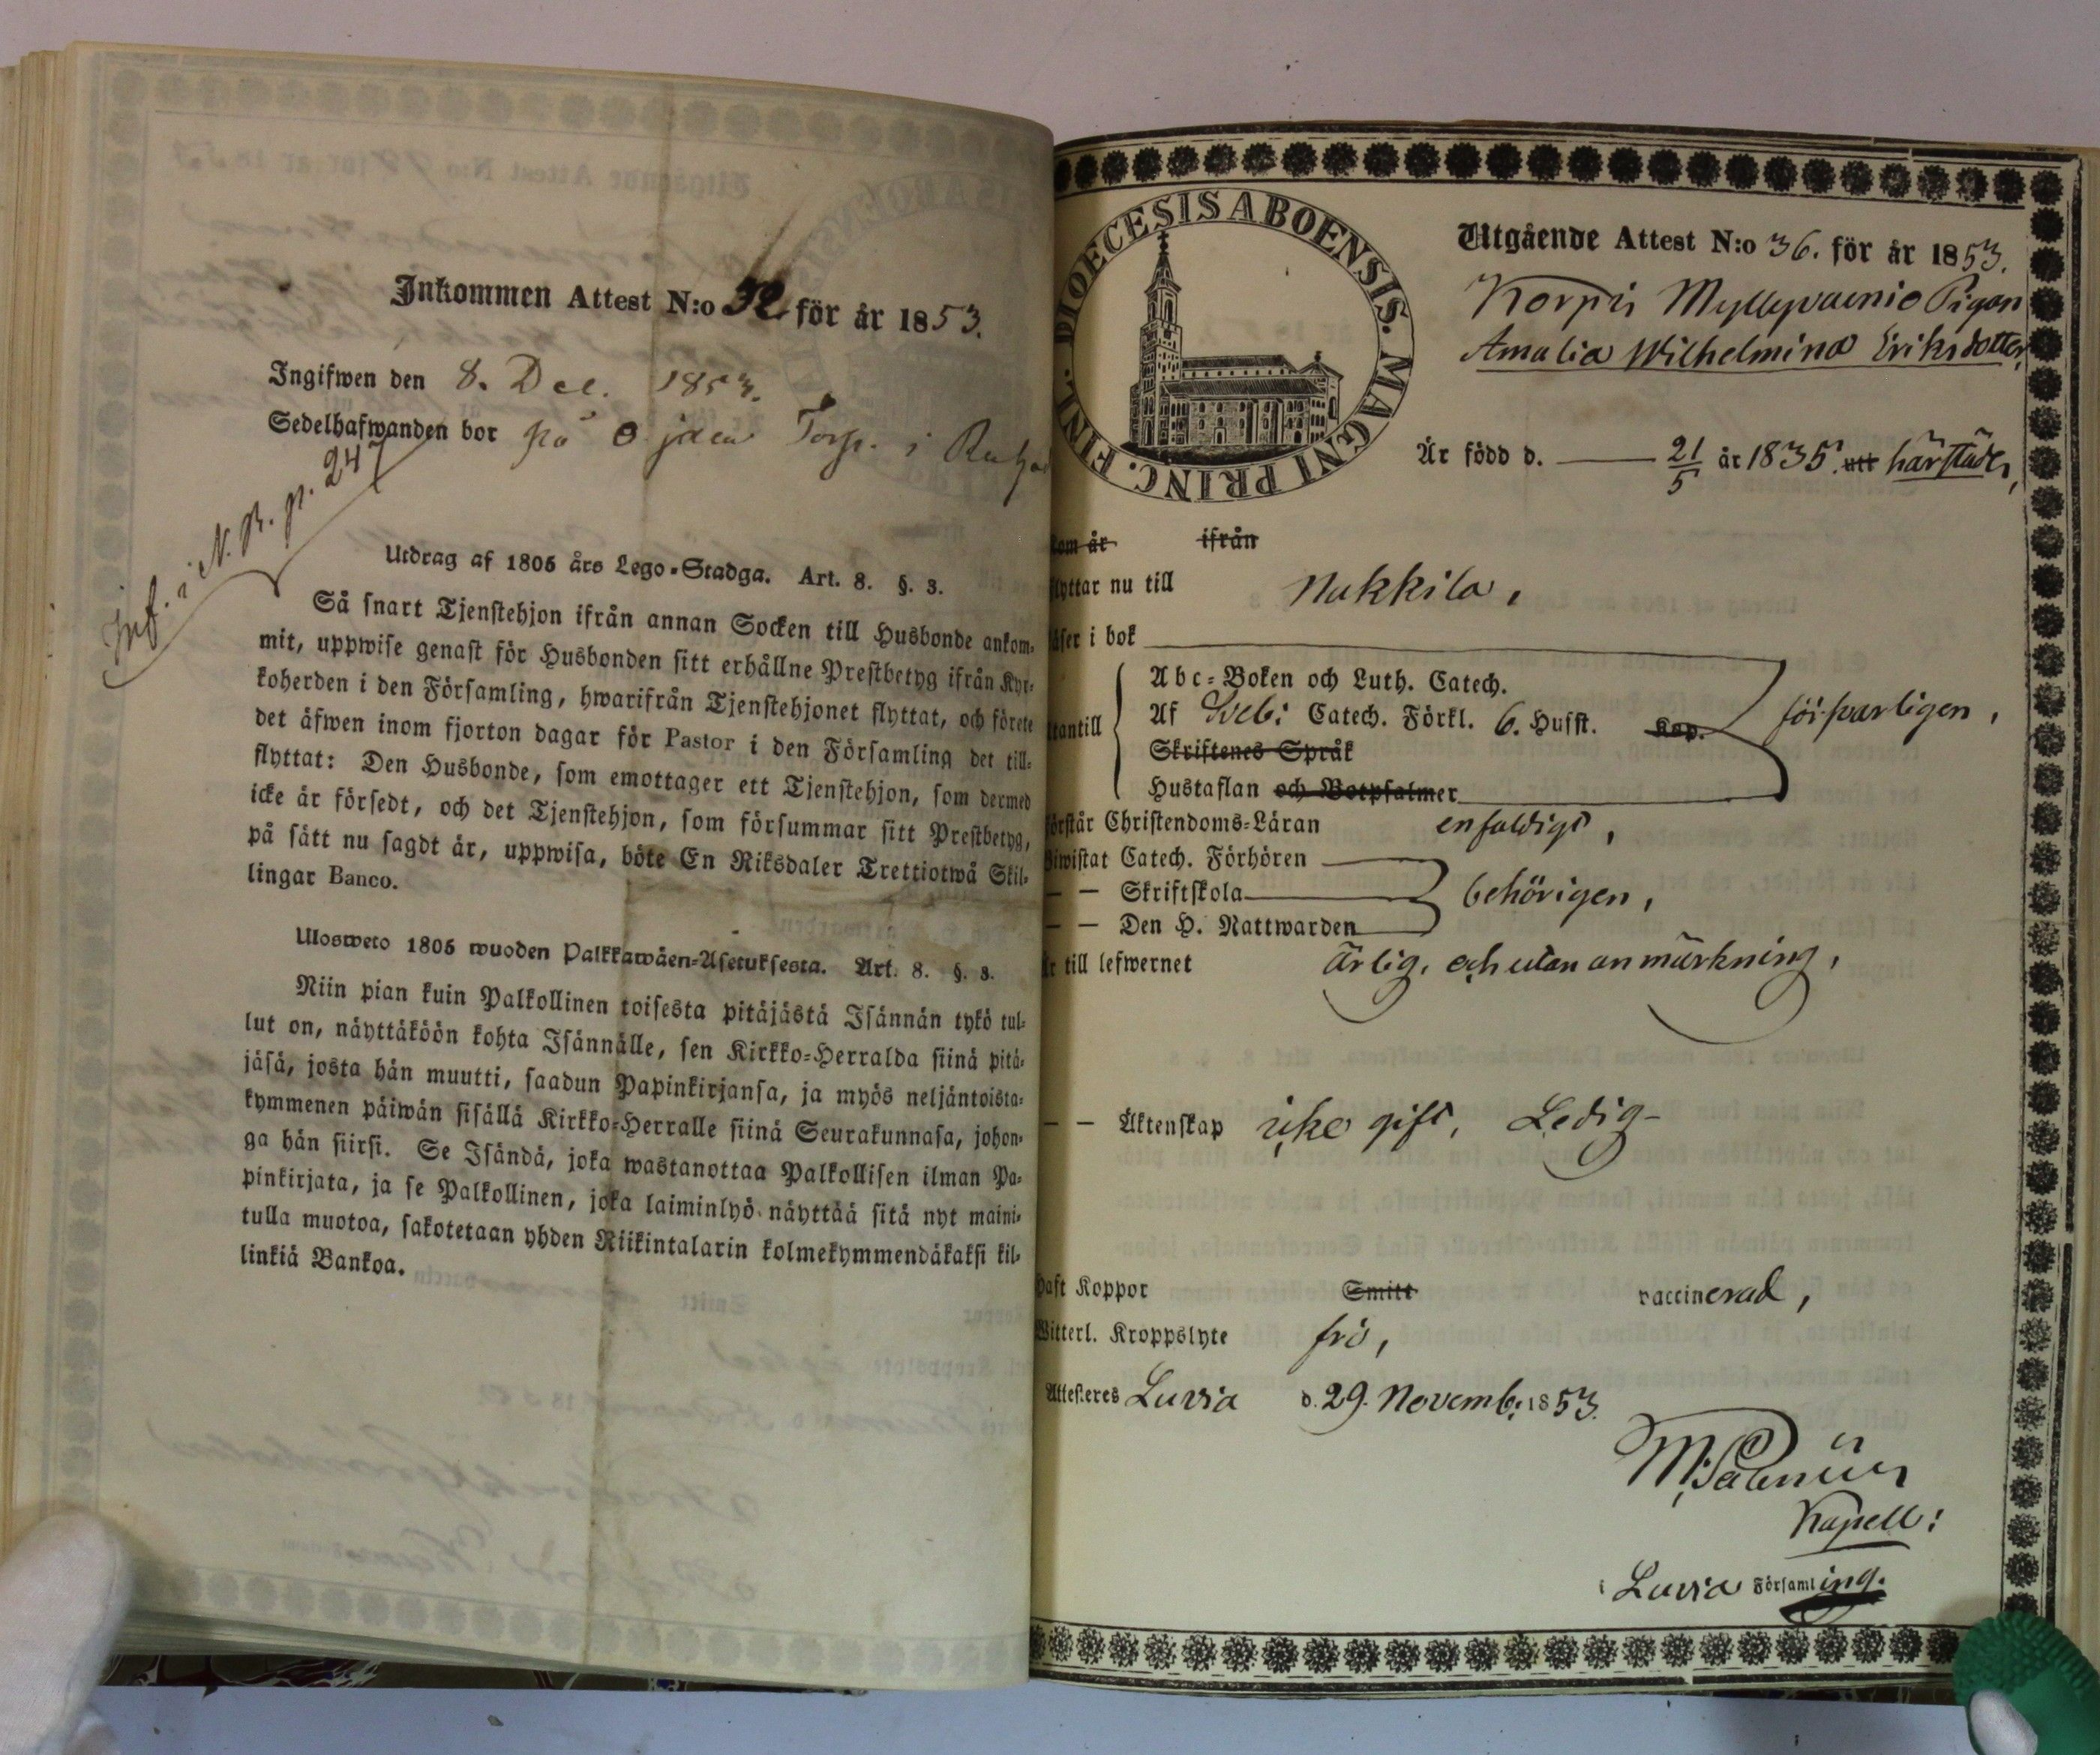 Inkommen Attest N:o 32 för år 1853.
Ingifwen den 8. Dec. 1853.
Sedelhafwanden bor på Ojala Torp. i
Inf. i N. B. p. 247
Utdrag af 1805 års Lego-Stadga. Art. 8. §. 3.
Så snart Tjenstehjon ifrån annan Socken till Husbonde ankom-
mit, uppwise genast för Husbonden sitt erhållne Prestbetyg ifrån Kyr-
koherden i den Församling, hwarifrån Tjenstehjonet flyttat, och förete
det äfwen inom fjorton dagar för Pastor i den Församling det till-
flyttat: Den Husbonde, som emottager ett Tjenstehjon, som dermed
icke är försedt, och det Tjenstehjon, som försummar sitt Prestbetyg,
på sätt nu sagdt är, uppwisa, böte En Riksdaler Trettiotwå Skil-
lingar Banco.
Ulosweto 1805 wuoden Palkkawäen-Asetuksesta. Art. 8. §. 3.
Niin pian kuin Palkollinen toisesta pitäjästä Isännän tykö tul-
lut on, näyttäköön kohta Isännälle, sen Kirkko-Herralda siinä pitä-
jäsä, josta hän muutti, saadun Papinkirjansa, ja myös neljäntoista-
kymmenen päiwän sisällä Kirkko-Herralle siinä Seurakunnasa, johon-
ga hän siirsi. Se Isändä, joka wastanottaa Palkollisen ilman Pa-
pinkirjata, ja se Palkollinen, joka laiminlyö näyttää sitä nyt maini-
tulla muotoa, sakotetaan yhden Riikintalarin kolmekymmendäkaksi kil-
linkiä Bankoa.
DIOECESIS ABOENSIS. MAGNI PRINC. FINL.
Utgående Attest N:o 36. för år 1853.
Korpis Myllyvainio Pigan
Amalia Wilhelmina Eriksdotter,
Är född d. 21/5 år 1835. uti härstädes,
kom år ifrån
flyttar nu till Nakkila,
läser i bok
utantill
Abc-Boken och Luth. Catech.
Af Sveb: Catech. Förkl. 6. Hufst. Kap. försvarligen,
Skriftenes Språk
Hustaflan och Botpsalmer
förstår Christendoms-Läran enfaldigt,
Biwistat Catech. Förhören
— — Skriftskola behörigen,
— — Den H. Nattwarden
Är till lefwernet ärlig, och utan anmärkning,
— — Äktenskap icke gift, Ledig
Haft Koppor Smitt vaccinerad,
Witterl. Kroppslyte fri,
Attesteres Luvia d. 29. Novemb: 1853.
Kapell:
i Luvia Församling.